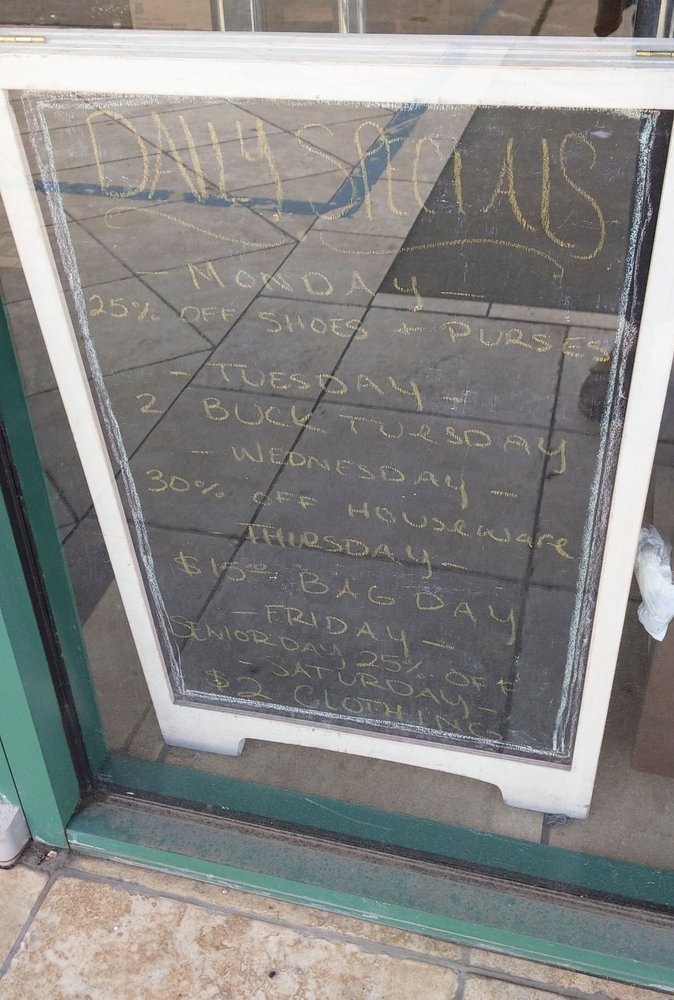 DAILY SPECIALS
- MONDAY -
25% OFF SHOES + PURSES
- TUESDAY -
2 BUCK TUESDAY
- WEDNESDAY -
30% OFF HOUSEWARE
- THURSDAY -
$15⁰⁰ BAG DAY
- FRIDAY -
SENIOR DAY 25% OFF
- SATURDAY -
$2 CLOTHING